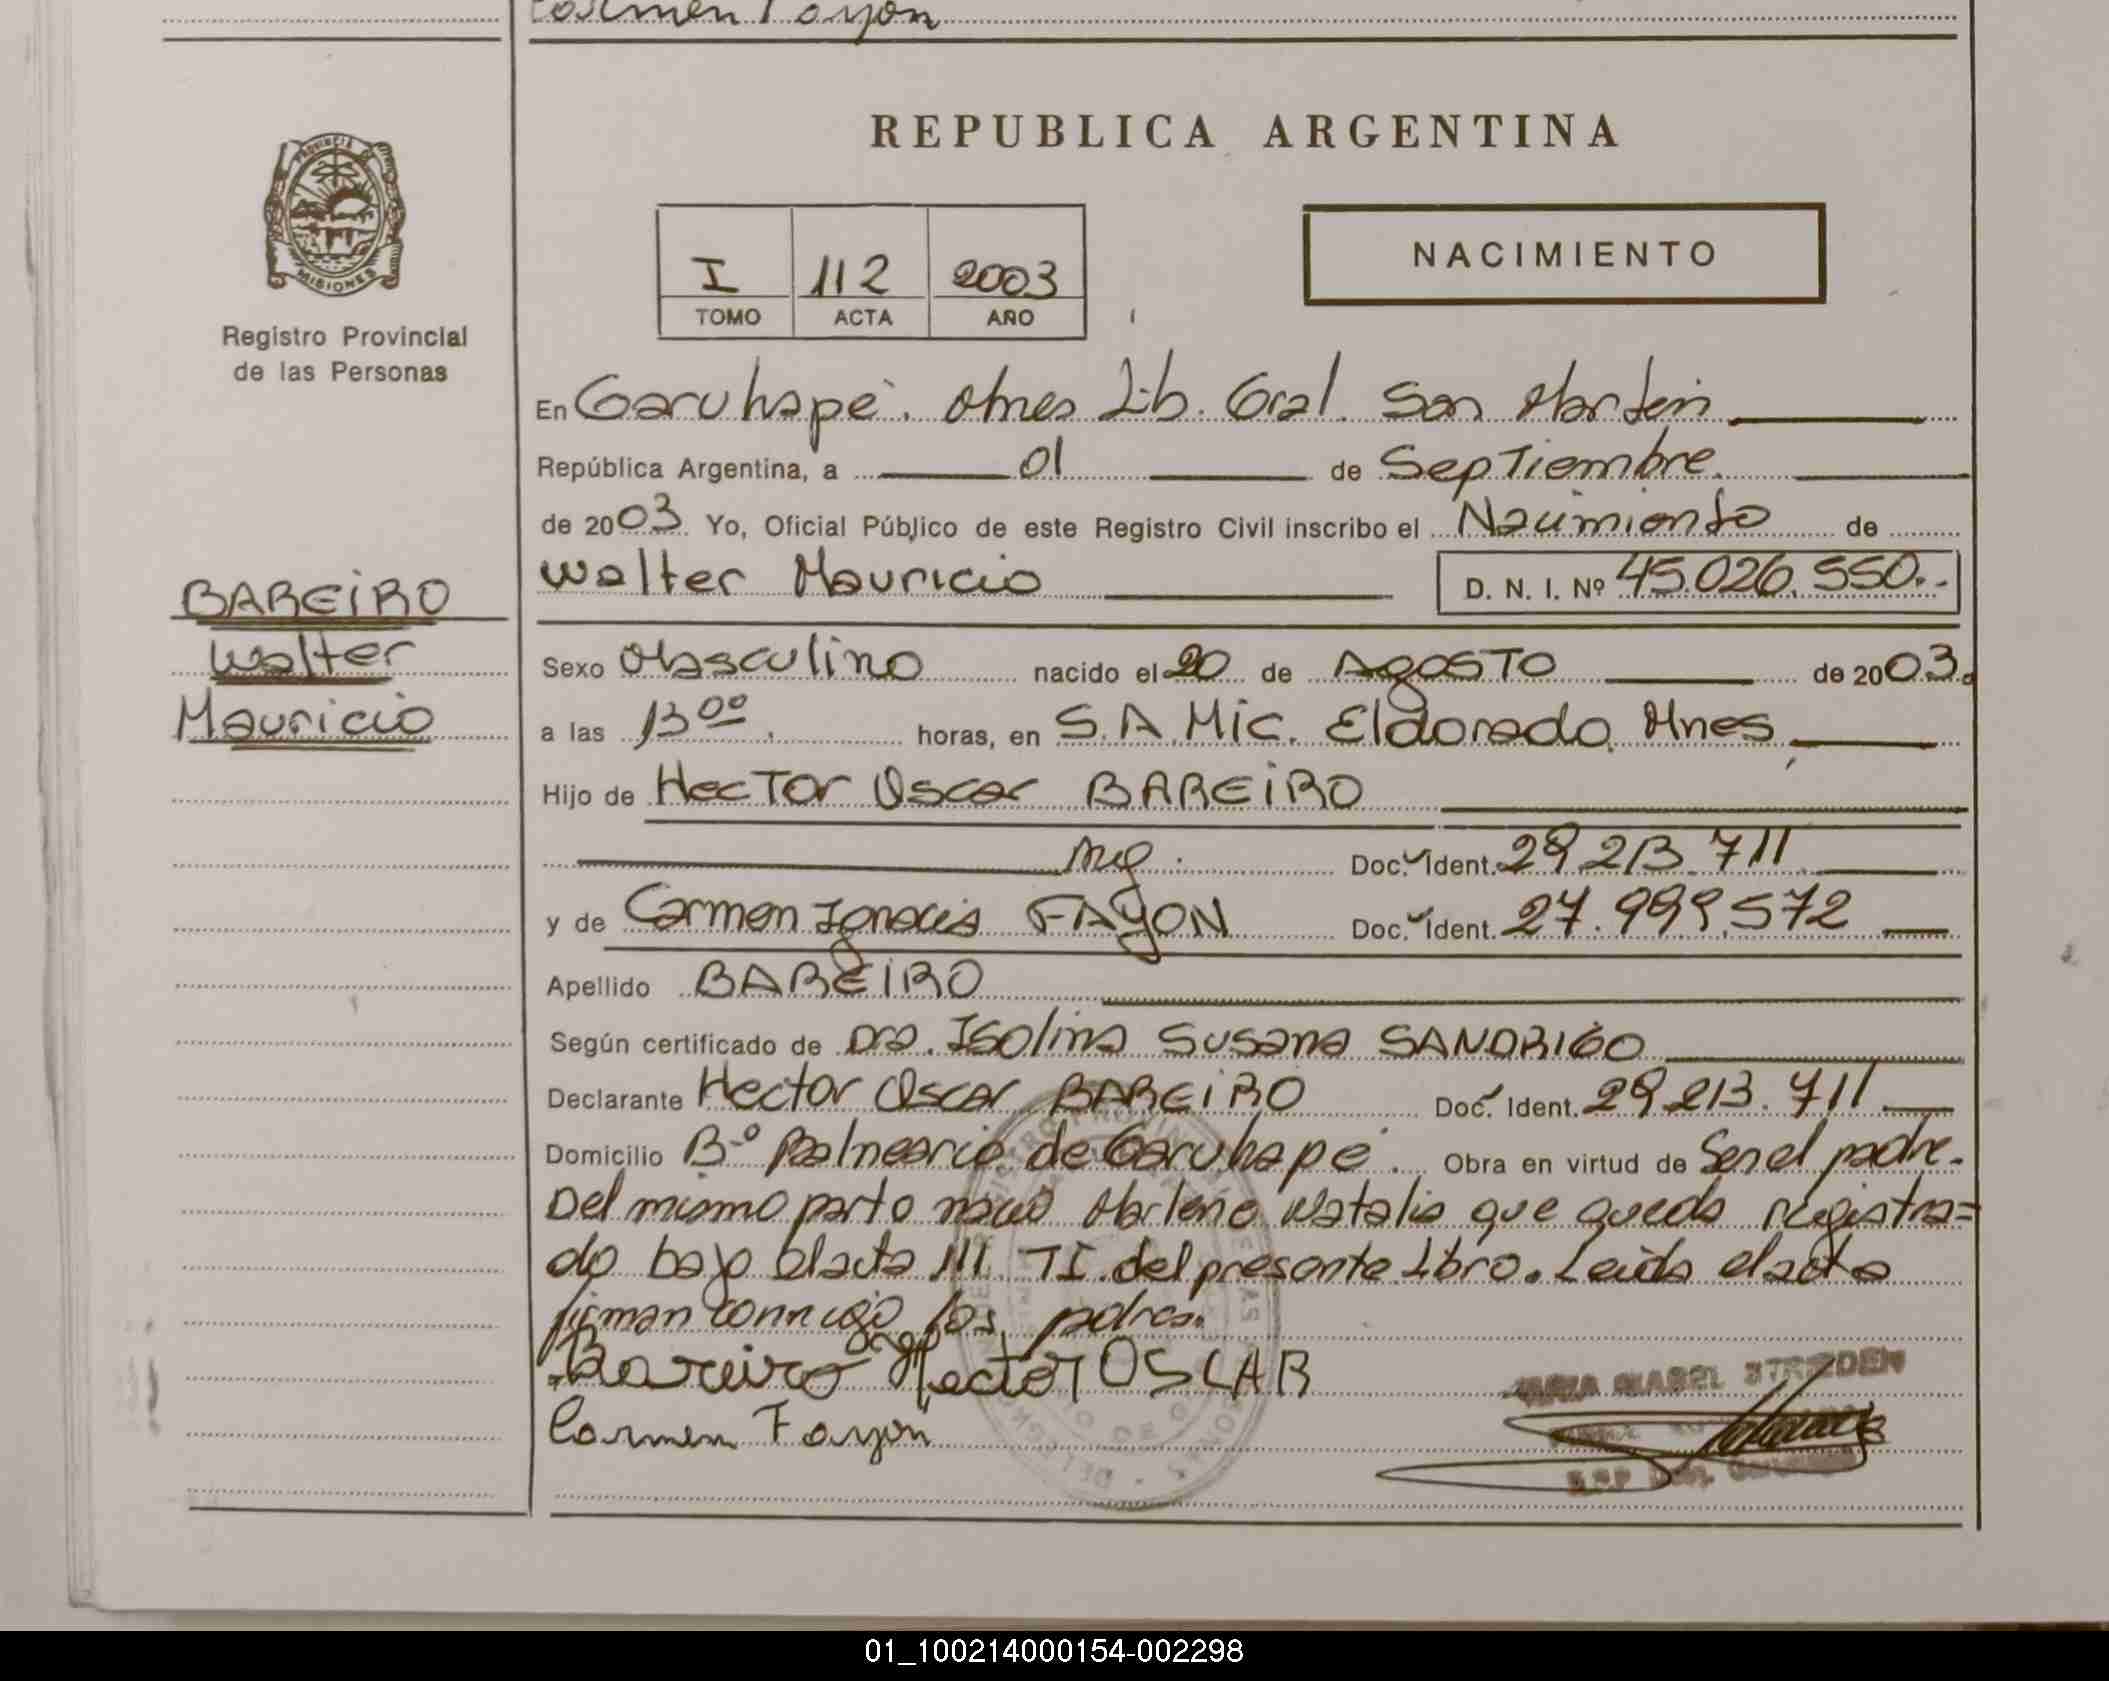 Carmen Fayon
PROVINCIA DE
MISIONES
Registro Provincial
de las Personas
BAREIRO
Walter
Mauricio
REPUBLICA ARGENTINA
I 112 2003
TOMO ACTA AÑO
NACIMIENTO
En Garuhapé. Mnes Lib. Gral. San Martín
República Argentina, a 01 de Septiembre.
de 2003. Yo, Oficial Público de este Registro Civil inscribo el Nacimiento de
Walter Mauricio D. N. I. Nº 45.026.550.-
Sexo Masculino nacido el 20 de AgOSTO de 2003.
a las 13 00. horas, en S.A.Mic. Eldorado. Mnes,
Hijo de HecTor Oscar BAREIRO
Arg. Doc. Ident. 29 213.711
y de Carmen Ignacia FAYON Doc. Ident. 27.999.572
Apellido BAREIRO
Según certificado de Dra. ISolina Susana SANDRIGO
Declarante Hector Oscar BAREIRO Doc. Ident. 29 213.711
Domicilio Bº Balneario de Garuhapé. Obra en virtud de Ser el padre.
Del mismo parto nació Marlene Natalia que queda registra=
do bajo el acta 111 TI. del presente Libro. Leida el acta
firman conmigo los padres.
Bareiro Hector OSCAR
Carmen Fayon
01_100214000154-002298